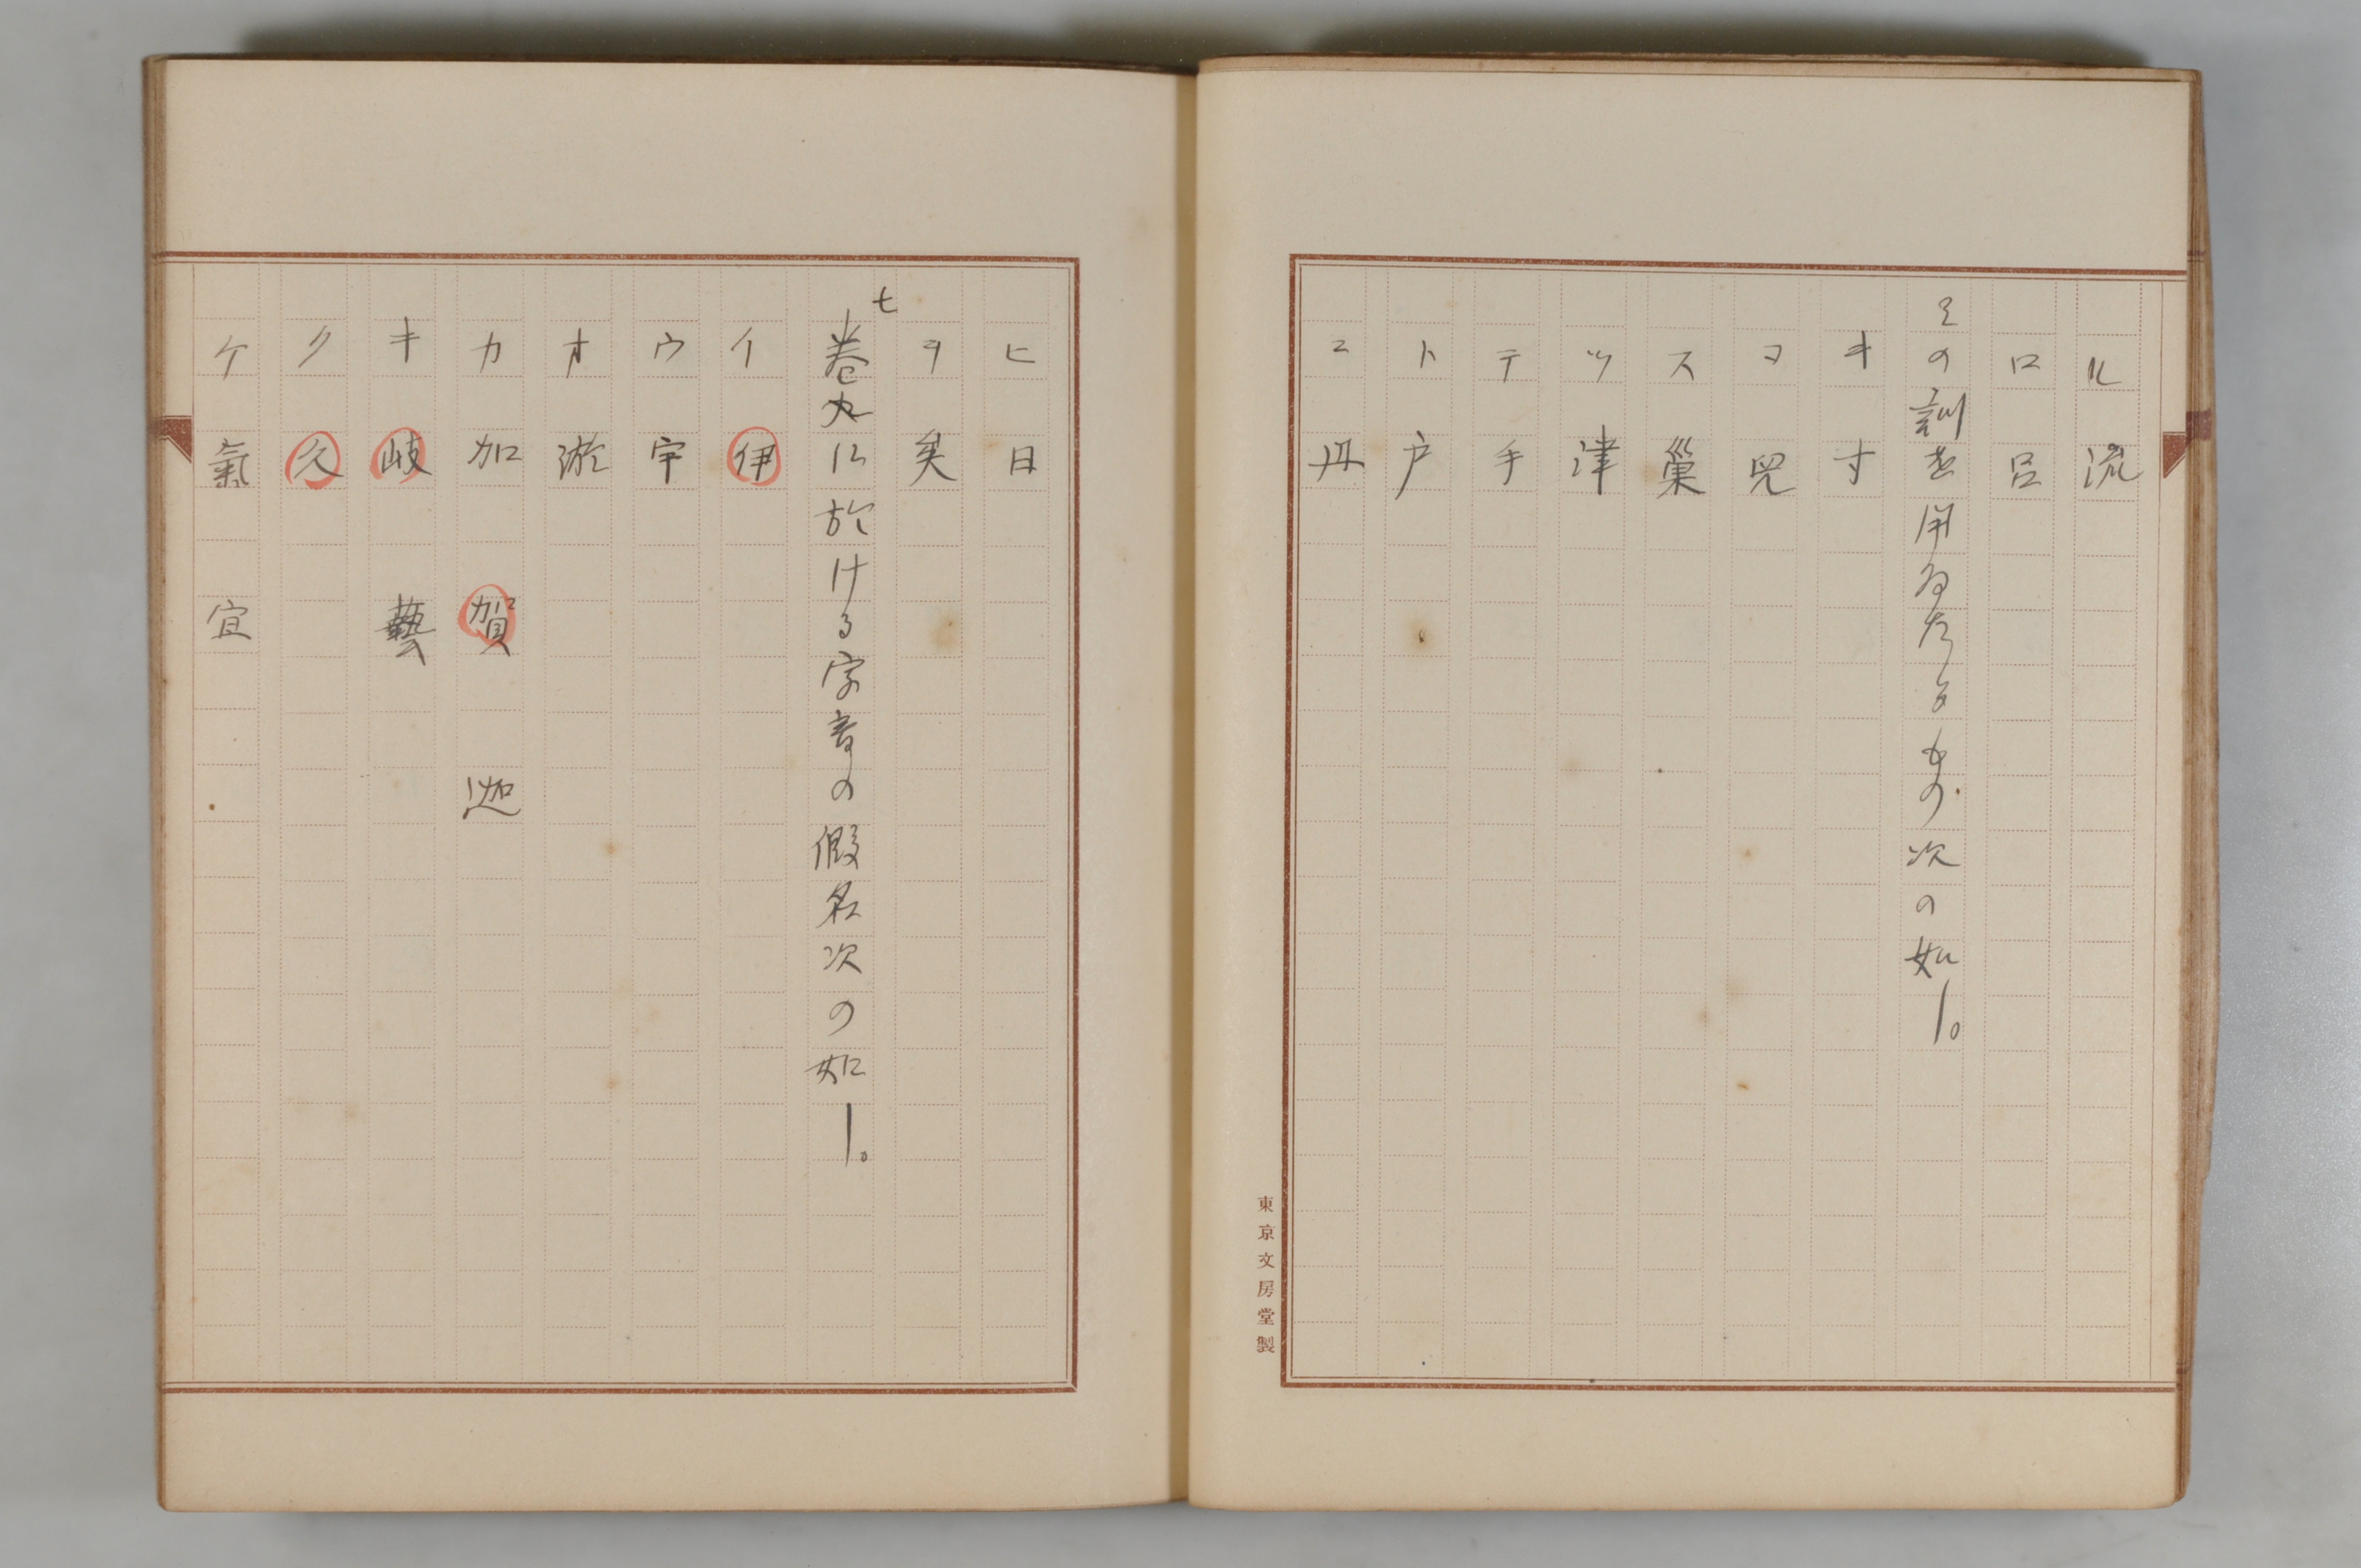 ル 流
ロ 呂
その訓を用ゐたるもの次の如し。
キ 寸
コ 兒
ス 巢
ツ 津
テ 手
ト 戸
ニ 丹
東京文房堂製
ヒ 日
ヲ 矣
巻七に於ける字音の假名次の如し。
イ 伊
ウ 宇
オ 淤
カ 加 賀 迦
キ 岐 藝
ク 久
ケ 氣 宜